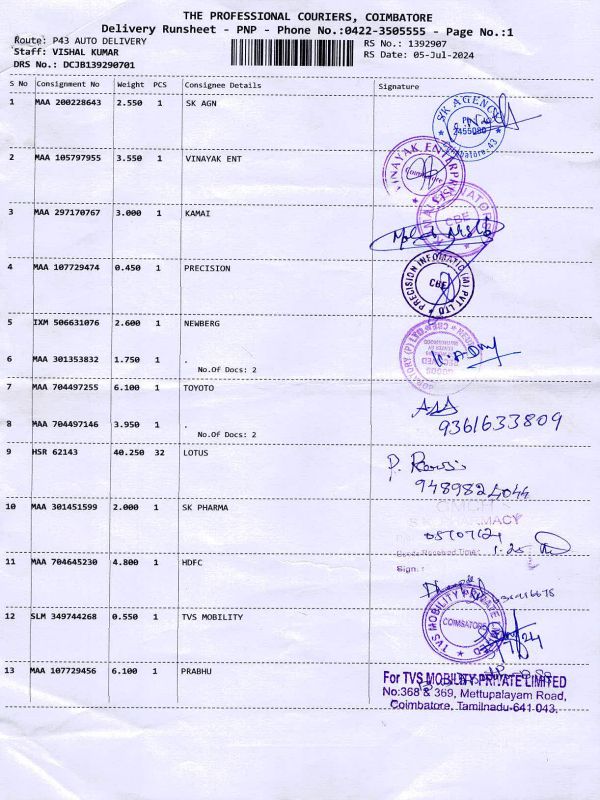 THE PROFESSIONAL COURIERS, COIMBATORE
Delivery Runsheet - PNP - Phone No.:0422-3505555 - Page No.:1
Route: P43 AUTO DELIVERY
Staff: VISHAL KUMAR
DRS No.: DCJB139290701
RS No.: 1392907
RS Date: 05-Jul-2024
S No Consignment No Weight PCS Consignee Details Signature
1 MAA 200228643 2.550 1 SK AGN
SK AGENCY
Coimbatore-43
2 MAA 105797955 3.550 1 VINAYAK ENT
VINAYAK ENTERPRISES
Coimbatore
3 MAA 297170767 3.000 1 KAMAI
CBE
4 MAA 107729474 0.450 1 PRECISION
PRECISION INFOMATIC (M) PVT LTD
CBE
5 IXM 506631076 2.600 1 NEWBERG
6 MAA 301353832 1.750 1 .
No.Of Docs: 2
7 MAA 704497255 6.100 1 TOYOTO
9361633809
8 MAA 704497146 3.950 1 .
No.Of Docs: 2
9 HSR 62143 40.250 32 LOTUS
9489824044
10 MAA 301451599 2.000 1 SK PHARMA
05/07/24
11 MAA 704645230 4.800 1 HDFC
Sign.:
12 SLM 349744268 0.550 1 TVS MOBILITY
TVS MOBILITY PRIVATE LIMITED
COIMBATORE
13 MAA 107729456 6.100 1 PRABHU
For TVS MOBILITY PRIVATE LIMITED
No:368 & 369, Mettupalayam Road,
Coimbatore, Tamilnadu-641 043.